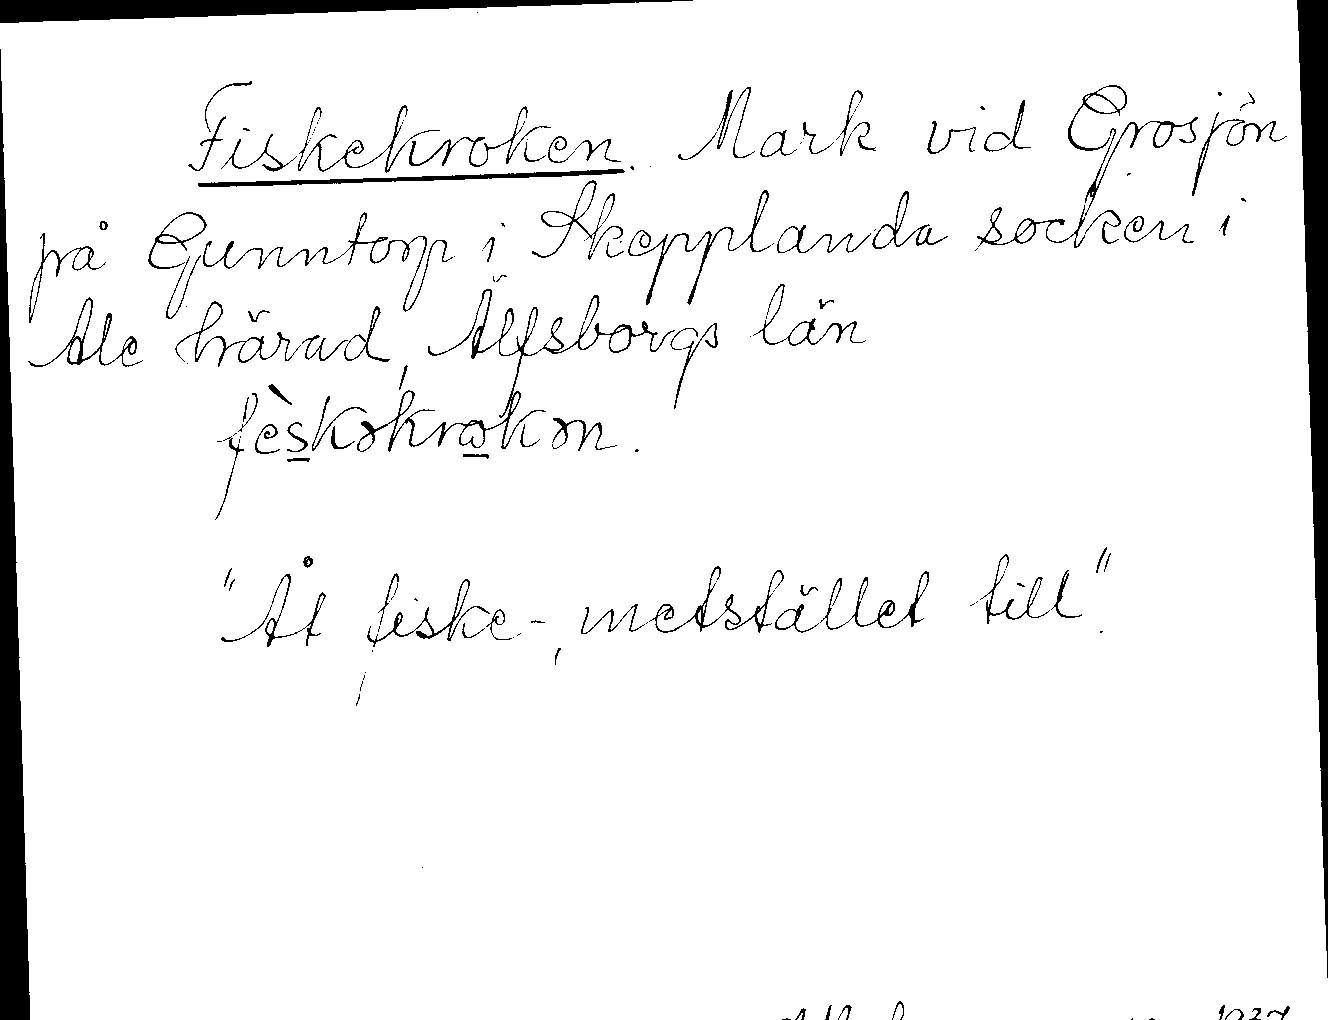 Fiskekroken. Mark vid Grosjön
på Gunntorp i Skepplanda socken i
Ale härad, Älfsborgs län
fèskəkrokən.
"Åt fiske-, metstället till".
1937